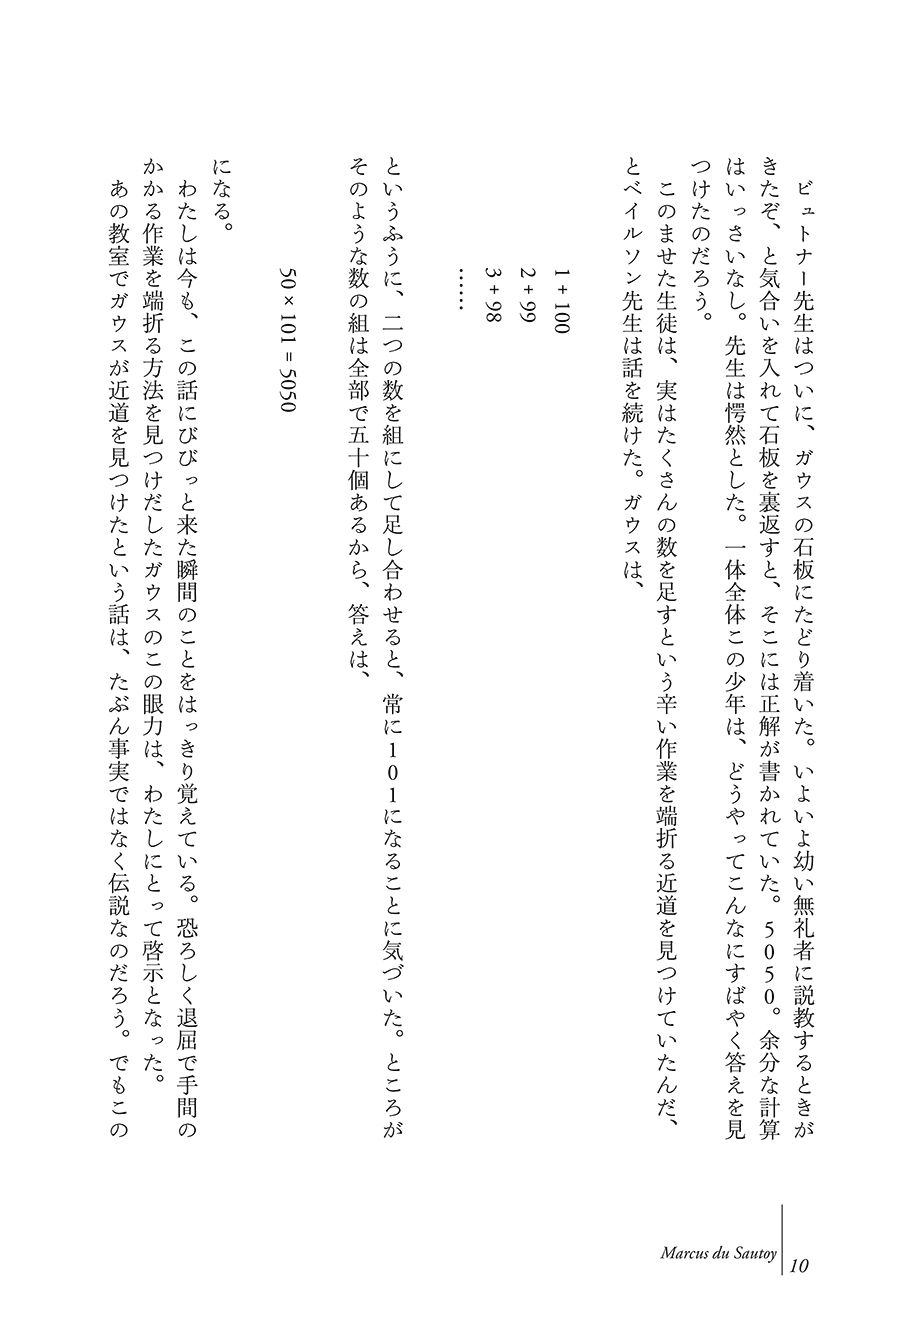 ビュトナー先生はついに、ガウスの石板にたどり着いた。いよいよ幼い無礼者に説教するときが
きたぞ、と気合いを入れて石板を裏返すと、そこには正解が書かれていた。5050。余分な計算
はいっさいなし。先生は愕然とした。一体全体この少年は、どうやってこんなにすばやく答えを見
つけたのだろう。
　このませた生徒は、実はたくさんの数を足すという辛い作業を端折る近道を見つけていたんだ、
とベイルソン先生は話を続けた。ガウスは、
1 + 100
2 + 99
3 + 98
……
というふうに、二つの数を組にして足し合わせると、常に101になることに気づいた。ところが
そのような数の組は全部で五十個あるから、答えは、
50 × 101 = 5050
になる。
　わたしは今も、この話にびびっと来た瞬間のことをはっきり覚えている。恐ろしく退屈で手間の
かかる作業を端折る方法を見つけだしたガウスのこの眼力は、わたしにとって啓示となった。
　あの教室でガウスが近道を見つけたという話は、たぶん事実ではなく伝説なのだろう。でもこの
Marcus du Sautoy
10